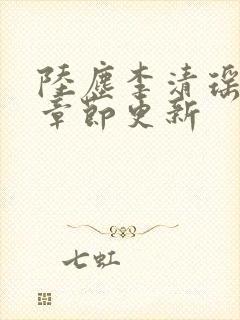 陸塵李清瑤
章節更新
七虹